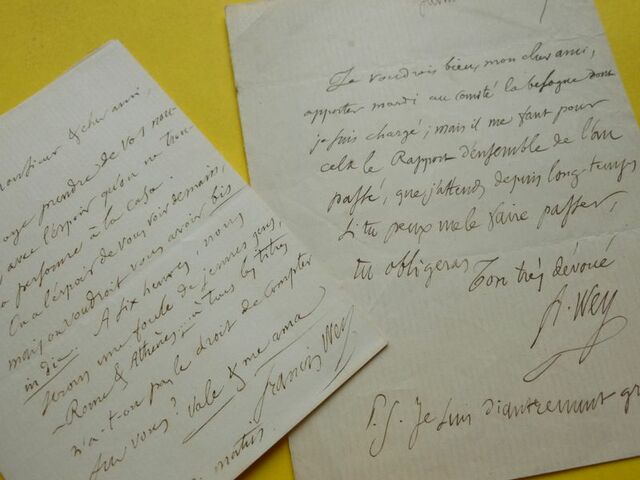 Monsieur & cher ami,
oye prendre de vos nou-
avec l'espoir qu'on ne trou-
a personne à la casa.
On a l'espoir de vous voir demain,
mais on voudrait vous avoir bis
in die. A six heures, nous
serons une foule de jeunes gens,
Rome & Athènes: à tous les titres
n'a-t-on pas le droit de compter
sur vous? Vale & me ama
Francis Wey
matin.
Je voudrais bien, mon cher ami,
apporter mardi au Comité la besogne dont
je suis chargé; mais il me faut pour
cela le Rapport d'ensemble de l'an
passé, que j'attends depuis long-temps
Si tu peux me le faire passer,
tu obligeras
Ton très dévoué
F. Wey
P.S. Je suis d'autrement gr